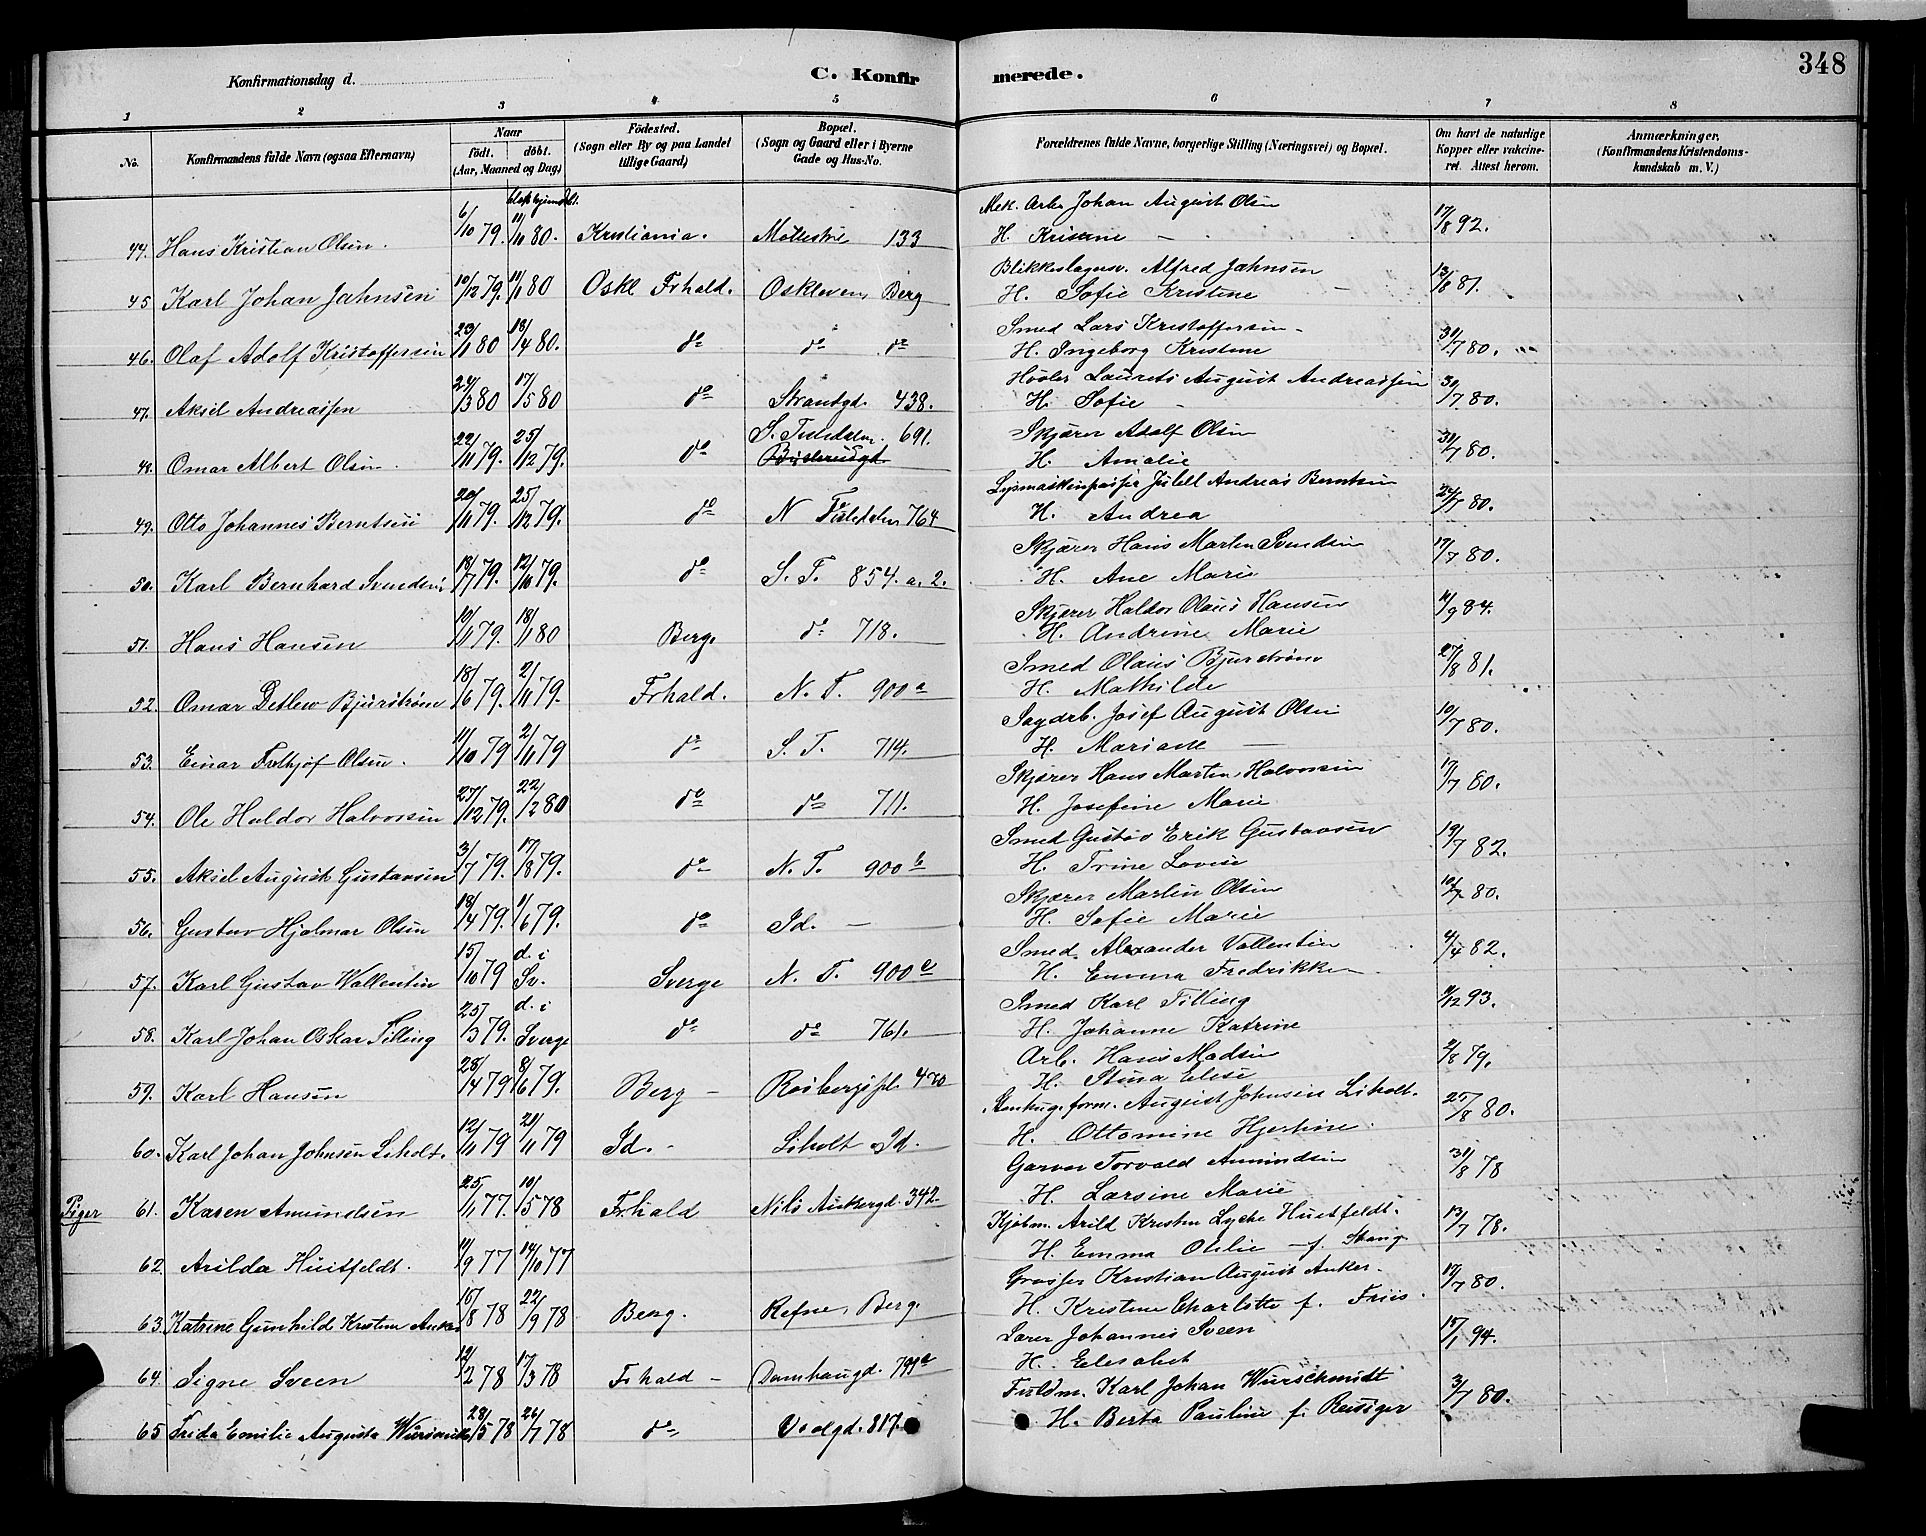 348
Konfirmationsdag d. C. Konfirmerede.
1 2 3 4 5 6 7 8
No. Konfirmandens fulde Navn (ogsaa Efternavn) Naar födt. döbt. (Aar, Maaned og Dag) Födested. (Sogn eller By og paa Landet tillige Gaard) Bopæl. (Sogn og Gaard eller i Byerne Gade og Hus-No. Forældrenes fulde Navne, borgerlige Stilling (Næringsvei) og Bopæl. Om havt de naturlige Kopper eller vakcineret. Attest herom. Anmærkninger. (Konfirmandens Kristendomskundskab m. V.)
Mek. Arb. Johan August Olsen
44. Hans Kristian Olsen. 6/10 79. 11/10 80. Kristiania. 133 H. Kristine — 17/8 92.
Blikkeslagersv. Alfred Jahnsen
45 Karl Johan Jahnsen 10/12 79. 11/1 80 Oskl Frhald. Oskleven, Berg H. Sofie Kristine 13/8 81.
Smed Lars Kristoffersen
46. Olaf Adolf Kristoffersen 23/1 80 18/4 80. do do do H. Ingeborg Kristine 31/7 80.
Laurits August Andreassen
47. Aksel Andreassen 24/3 80 17/5 80 do Strandgd. 438. H. Sofie 31/7 80.
Skjærer Adolf Olsen
48. Omar Albert Olsen. 22/11 79. 25/12 79. do S. Tistedalen. 691. H. Amalie 31/7 80.
Lysmaskinpasser Julell Andreas Berntsen
49. Otto Johannes Berntsen 20/11 79. 25/12 79. do N Tistedalen 764 H. Andrea 24/7 80.
Skjærer Hans Martin Svendsen
50. Karl Bernhard Svendsen 18/7 79. 12/10 79. do S. T. 854. a. 2. H. Ane Marie 17/7 80.
Skjærer Haldor Olaus Hansen
51. Hans Hansen 19/11 79. 18/1 80 Berg do 718. H. Andrine Marie 11/9 84.
Smed Olaus Bjurstrøm
52. Omar Detlew Bjurstrøm 18/6 79. 2/11 79. Frhald. N. T. 900 a H. Mathilde 27/8 81.
Sagarb. Josef August Olsen
53. Einar Fritjof Olsen. 11/10 79 2/11 79 do S. T. 714. H. Mariane — 10/7 80.
Skjærer Hans Martin Halvorsen
54. Ole Haldor Halvorsen 27/12 79. 22/2 80 do do 711. H. Josefine Marie 17/7 80.
Smed Gustav Erik Gustavsen
55. Aksel August Gustavsen 3/7 79. 17/8 79. do N. T. 900 b H. Trine Lovise 19/7 82.
Skjærer Martin Olsen
56. Gustav Hjalmar Olsen 18/4 79. 1/6 79. do Id. — H. Sofie Marie 10/7 80.
Smed Alexander Vallentin
57. Karl Gustav Wallentin 15/10 79 d. i Sv. Sverge N. T. 900 c H. Emma Fredrikke 4/4 82.
Smed Karl Tilling
58. Karl Johan Oskar Tilling 25/3 79. d. i Sverge do do 761. H. Johanne Katrine 9/12 93.
Arb. Hans Madsen
59. Karl Hansen 28/4 79 8/6 79. Berg — Rosbergspl. 470 H. Stina Elise 2/8 79.
August Johnsen Liholt.
60. Karl Johan Johnsen Liholt. 12/11 79 21/11 79 Id. — Liholt Id. H. Ottomine 25/8 80.
Garver Torvald Amundsen
Piger 61. Karen Amundsen 25/1 77. 19/5 78 Frhald Nils Ankersgd. 342. H. Larsine Marie 31/8 78
Kjøbm. Arild Kristen Lyche Huitfeldt.
62. Arilda Huitfeldt. 11/9 77 14/10 77 H. Emma Otilie — f. Stang 13/7 78.
Grosser Kristian August Anker.
63. Katrine Gunhild Kristine Anker 16/8 78 22/9 78 Berg. Refne, Berg. H. Kristine Charlotte f. Friis. 17/7 80.
Lærer Johannes Sveen
64. Signe Sveen 12/2 78 17/3 78 Frhald — Damhaugd. 799 a H. Elisabet 15/1 94.
Fuldm. Karl Johan Würschmidt
65 Frida Emilie Augusta Würschmidt 28/5 78 26/7 78 do Voldgd. 817. H. Berta Pauline f. Reisiger 3/7 80.